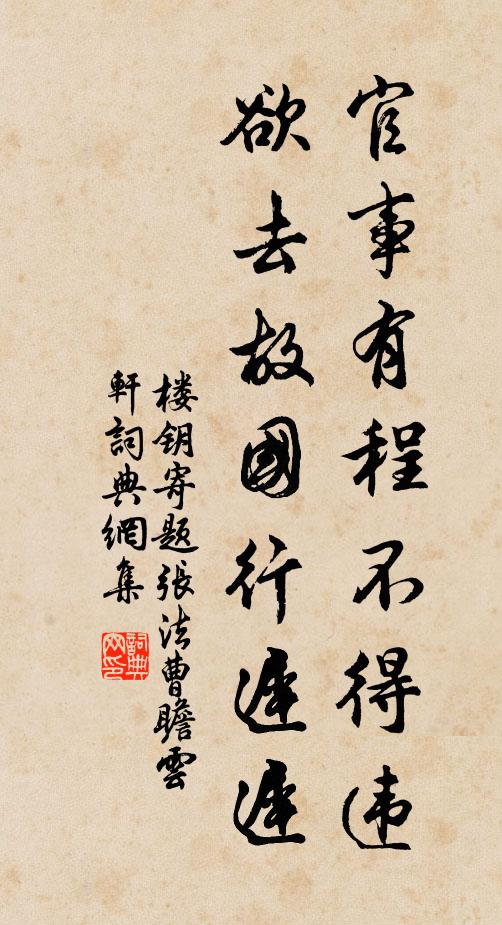 官事有程不得违
欲去故國行遲遲
楼钥寄题張法曹瞻雲
軒詞典網集
詞典网印